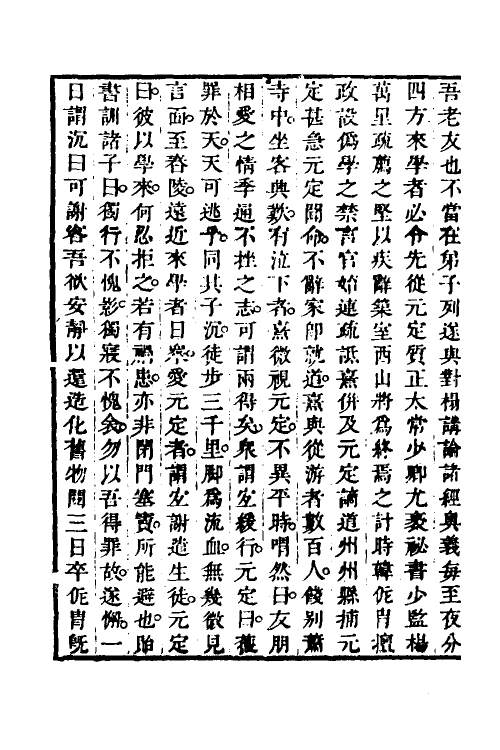 吾老友也不當在弟子列遂與對榻講論諸經奧義每至夜分
四方來學者必令先從元定質正太常少卿尤袤祕書少監楊
萬里疏薦之堅以疾辭築室西山將爲終焉之計時韓侂胄擅
政設僞學之禁言官始連疏詆熹併及元定謫道州州縣捕元
定甚急元定聞命不辭家卽就道熹與從游者數百人餞別蕭
寺中坐客興歎有泣下者熹微視元定不異平時喟然曰友朋
相愛之情季通不挫之志可謂兩得矣衆謂宜緩行元定曰獲
罪於天天可逃乎同其子沉徒步三千里脚爲流血無幾微見
言面至舂陵遠近來學者日衆愛元定者謂宜謝遣生徒元定
曰彼以學來何忍拒之若有禍患亦非閉門塞竇所能避也貽
書訓諸子曰獨行不愧影獨寢不愧衾勿以吾得罪故遂懈一
日謂沉曰可謝客吾欲安靜以還造化舊物閱三日卒侂胄旣